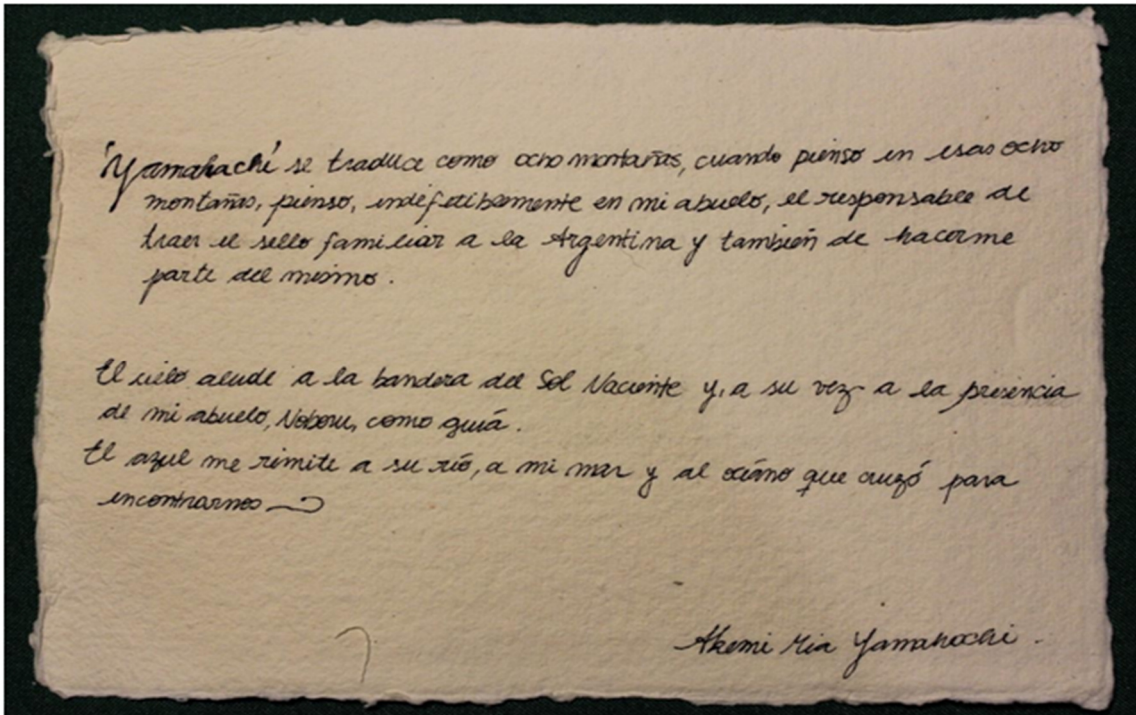 'Yamahachi' se traduce como ocho montañas, cuando pienso en esas ocho
montañas, pienso, indefectiblemente en mi abuelo, el responsable de
traer el sello familiar a la Argentina y también de hacerme
parte del mismo.
El cielo alude a la bandera del Sol Naciente y, a su vez a la presencia
de mi abuelo, Noboru, como guiá.
El azul me remite a su río, a mi mar y al océano que cruzó para
encontrarnos
Akemi Mia Yamahachi.